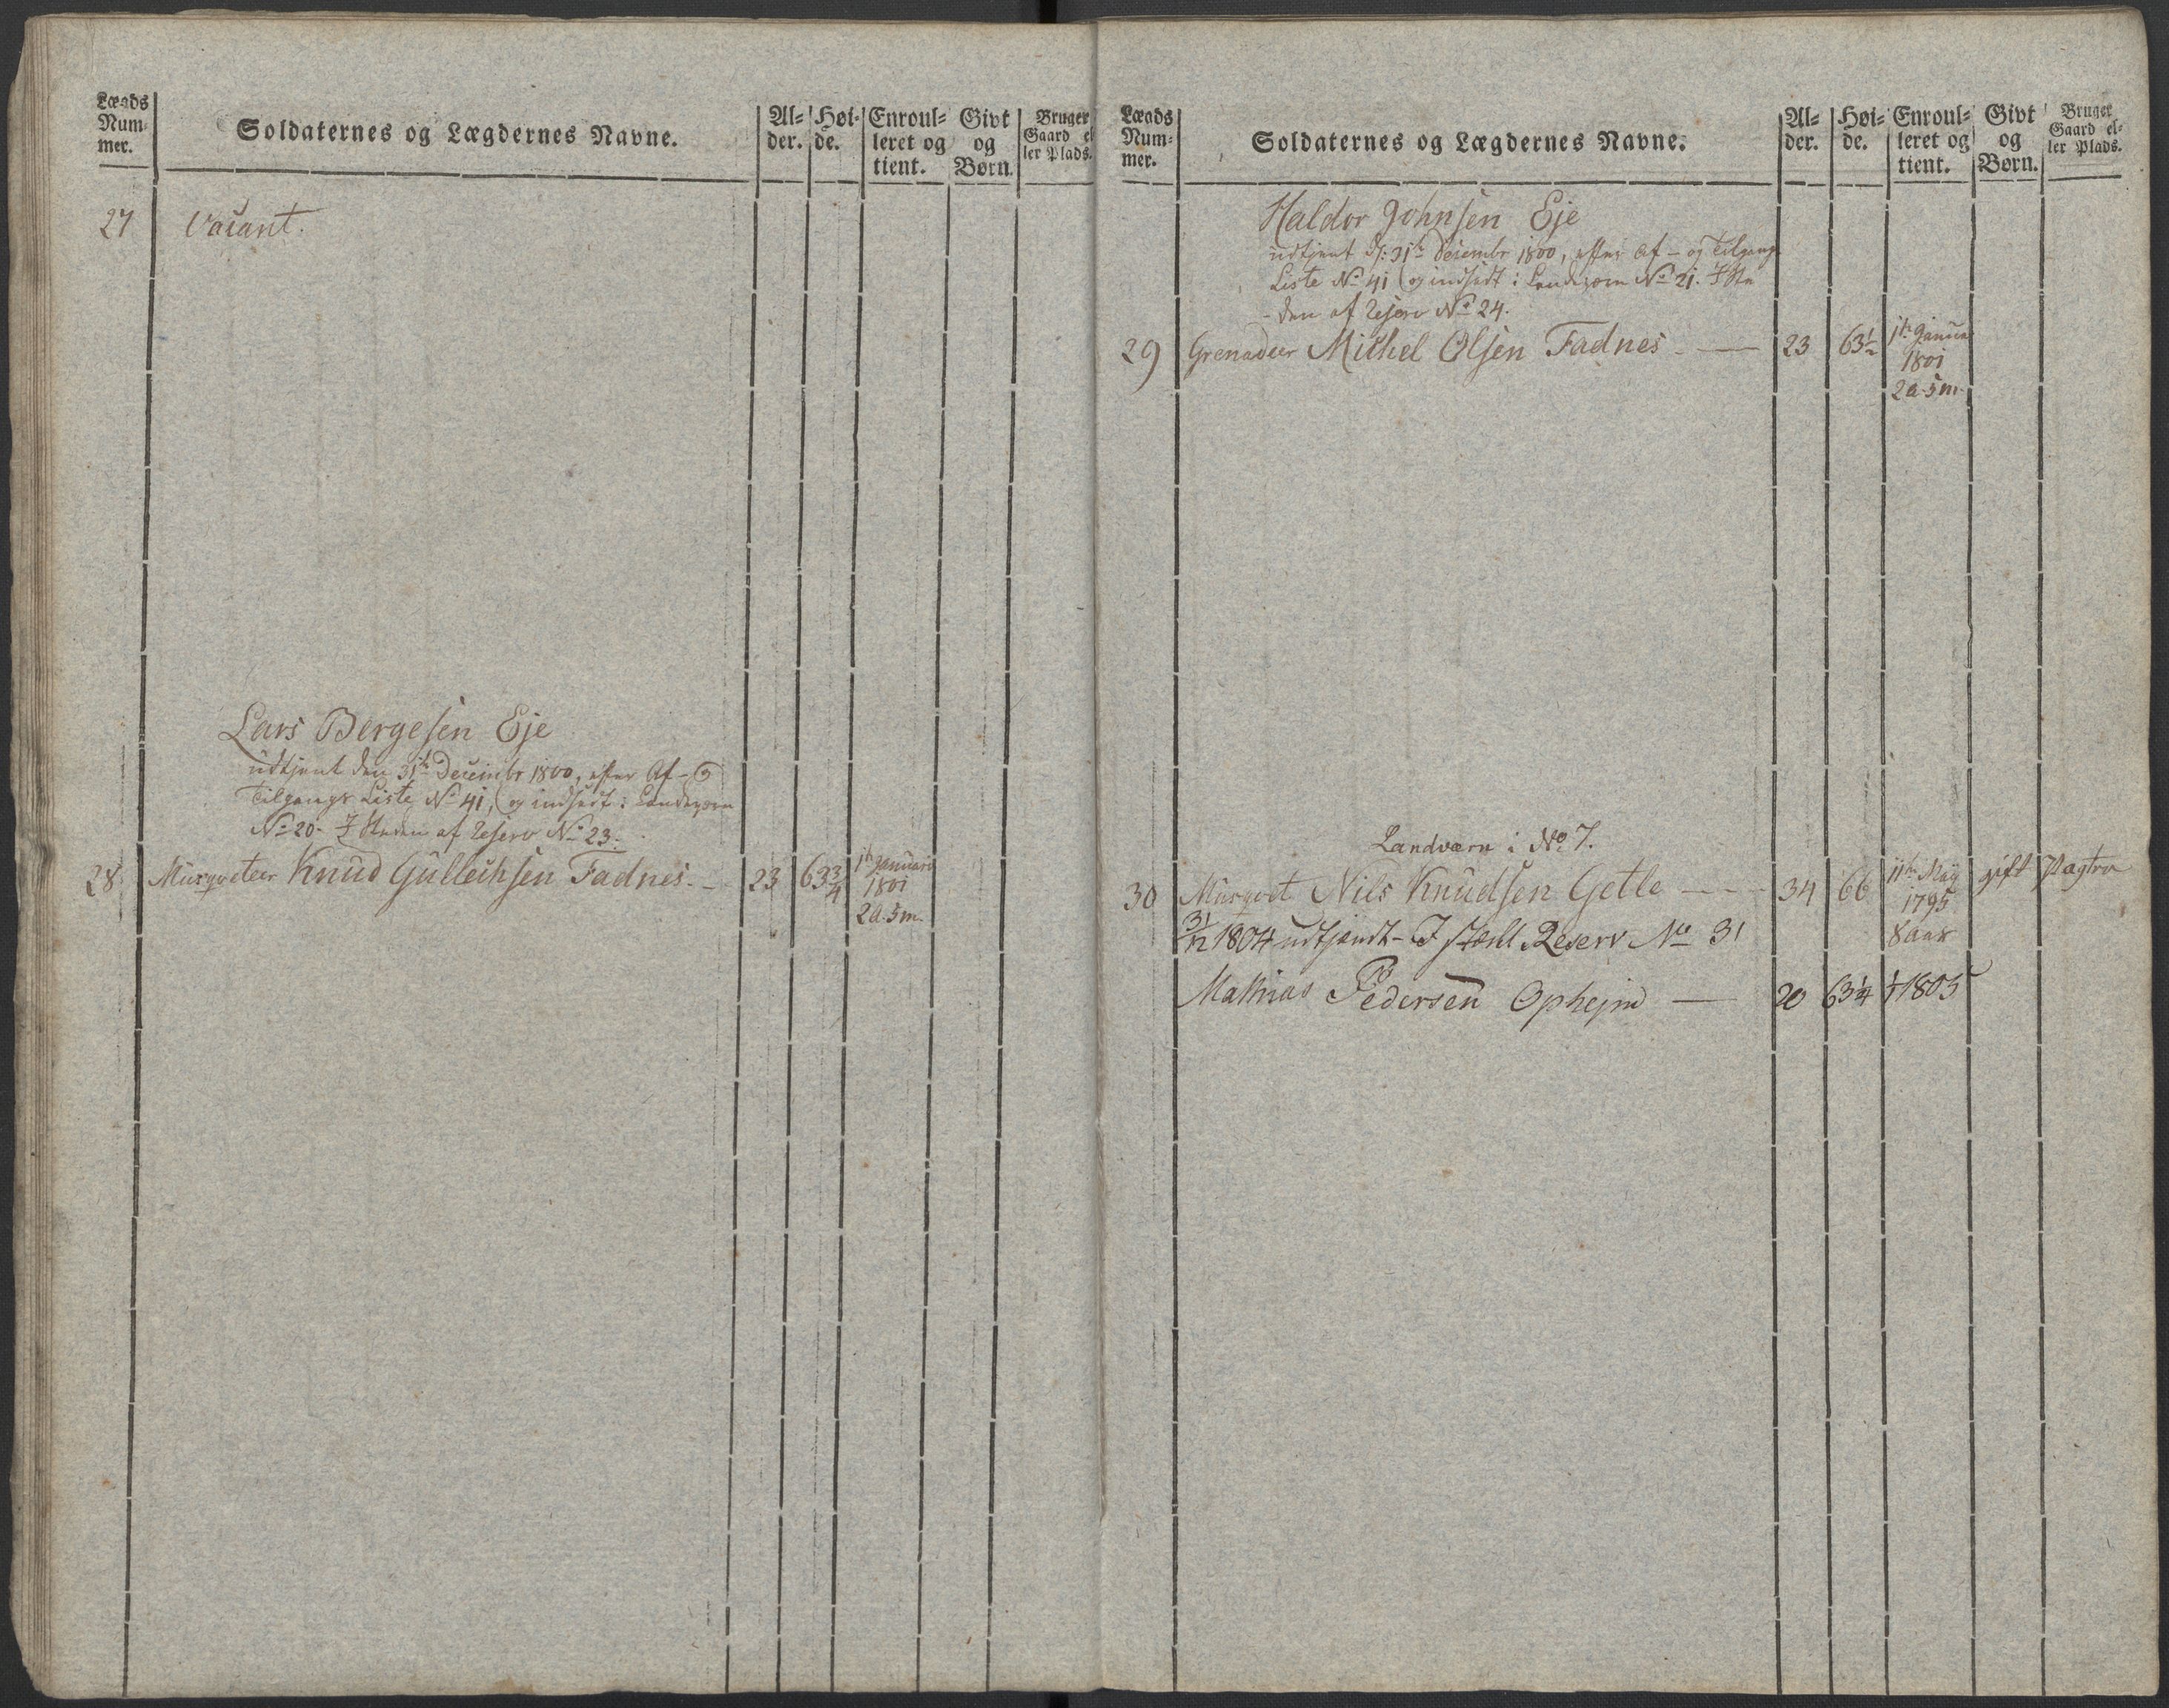 Lægds Num- mer.
Soldaternes og Lægdernes Navne.
Al- der.
Høi- de.
Enroul- leret og tient.
Givt og Børn.
Bruger Gaard el ler Plads.
27 Vacant.
Lars Bergesen Eje
udtjent den 31th Decembr 1800, efter Af- og
Tilgangs Liste No 41, og indsadt i Landværn
No 20. I Steden af Reserv No 23.
28 Musqveteer Knud Gullechsen Fadnes. - 23 63 3/4 1th Januari
1801
2a. 5m.
Lægds Num- mer.
Soldaternes og Lægdernes Navne.
Al- der.
Høi- de.
Enroul- leret og tient.
Givt og Børn.
Bruger Gaard el- ler Plads.
Haldor Johnsen Eje
udtjent d: 31th Decembr 1800, efter Af- og Tilgang
Liste No 41 og indsadt i Landværn No 21. I Ste
-den af Reserv No 24.
29 Grenadeer Michel Olsen Fadnes - 23 63 1/2 1th Janua
1801
2a. 5m.
Landværn i No 7.
30 Musqvet Nils Knudsen Getle - 34 66 11th May gift
1795
8 Aar
31/12 1804 udtjendt - I stæd Reserv No 31
Mathias Pedersen Ophejm - 20 63 1/4 1/1 1805